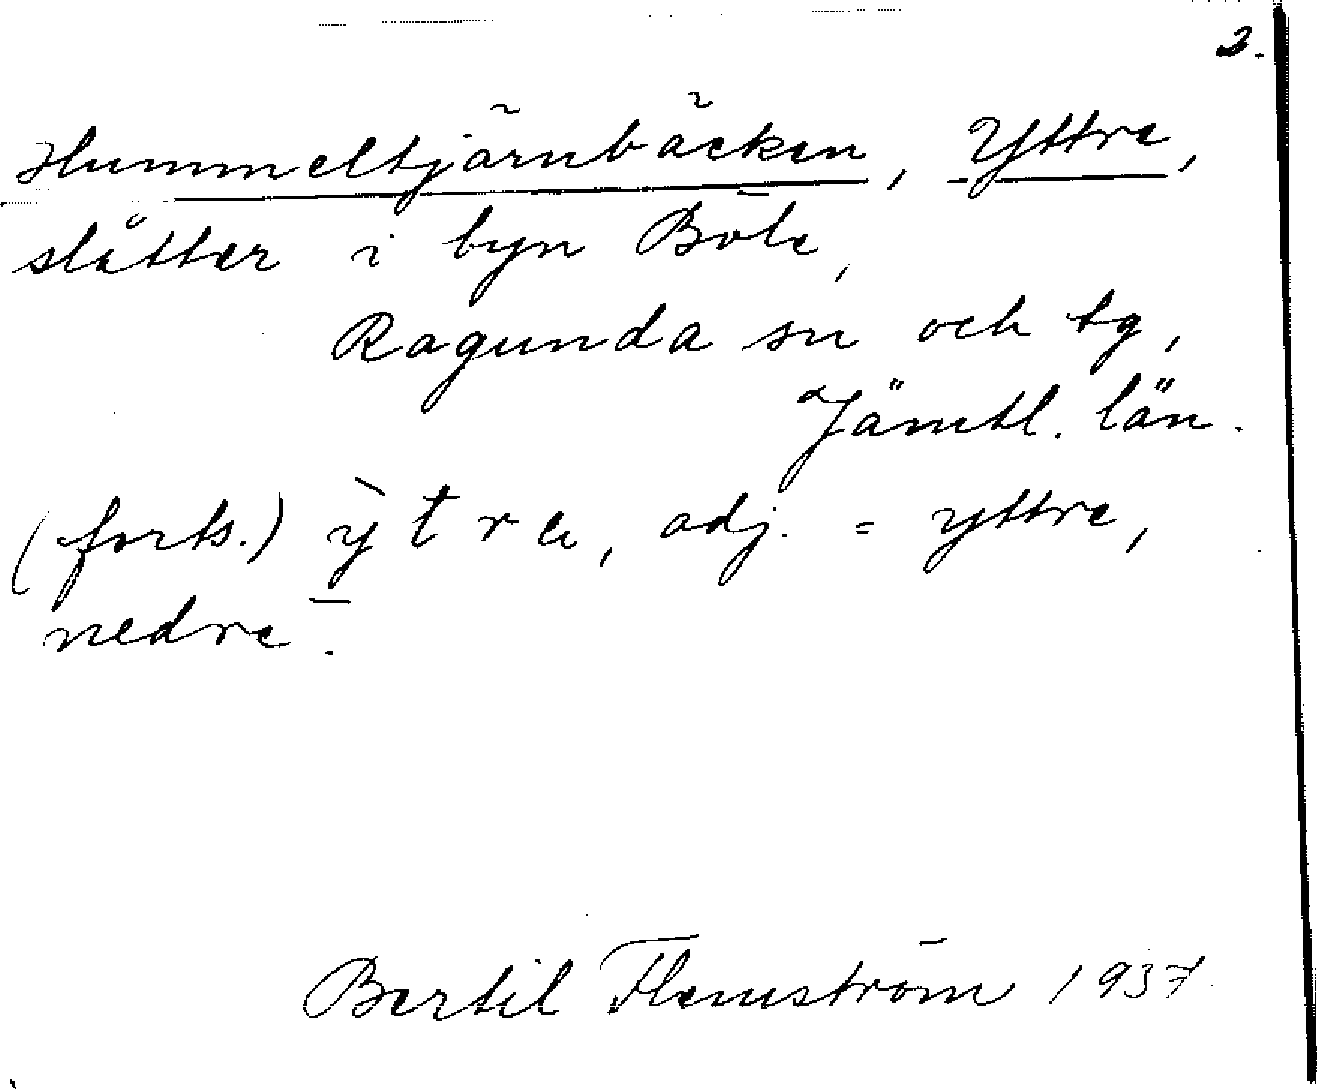 2.
Hummeltjärnbäcken, Yttre,
slåtter i byn Böle,
Ragunda sn och tg,
Jämtl. län.
(forts.) adj. = yttre,
nedre.
Bertil Flemström 1937